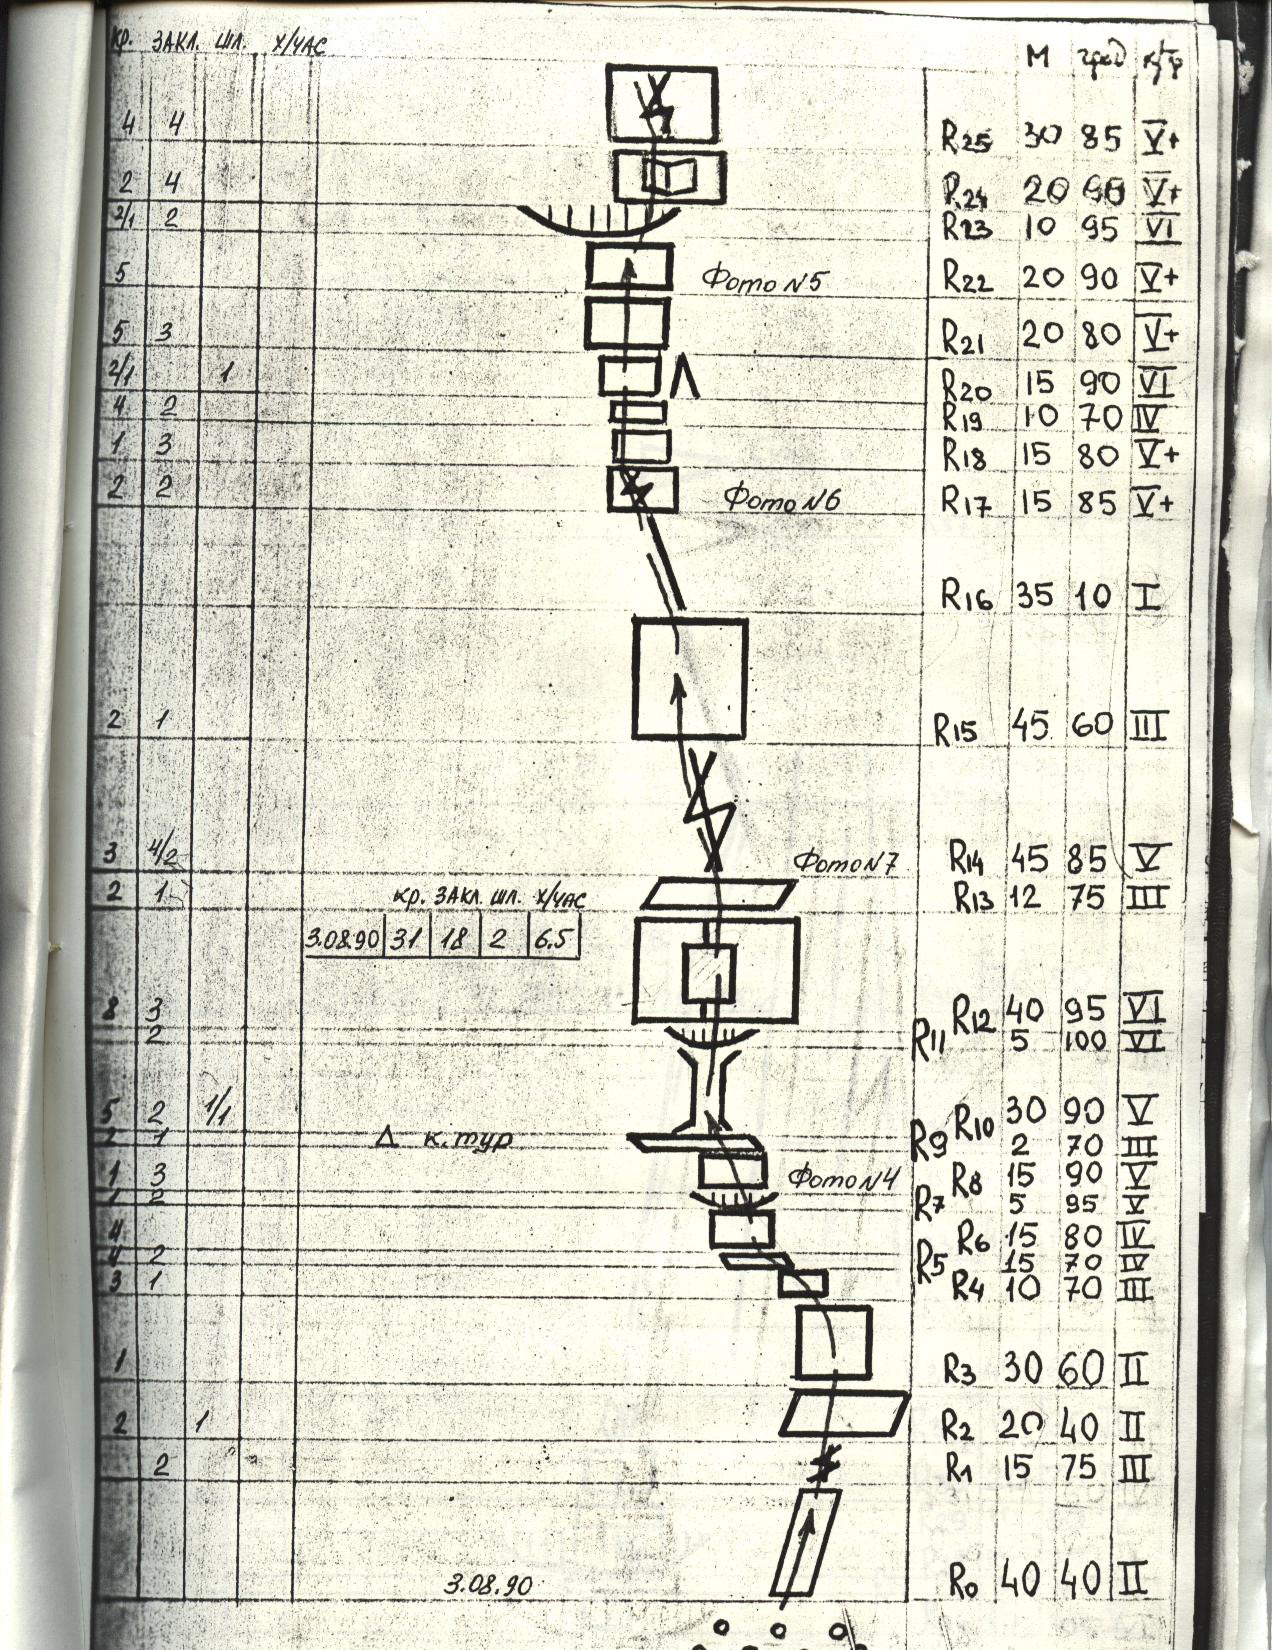 кр. ЗАКЛ. ШЛ. Х/ЧАС М град к/тр
4 4 R25 30 85 V+
2 4 R24 20 90 V+
2/1 2 R23 10 95 VI
5 Фото N5 R22 20 90 V+
5 3 R21 20 80 V+
2/1 1 R20 15 90 VI
4 2 R19 10 70 IV
1 3 R18 15 80 V+
2 2 Фото N6 R17 15 85 V+
R16 35 10 I
2 1 R15 45 60 III
3 4/2 Фото N7 R14 45 85 V
2 1 R13 12 75 III
кр. ЗАКЛ. ШЛ. Х/ЧАС
3.08.90 31 18 2 6.5
8 3 R12 40 95 VI
2 R11 5 100 VI
5 2 1/1 R10 30 90 V
2 1 Δ к. тур R9 2 70 III
1 3 Фото N4 R8 15 90 V
1 2 R7 5 95 V
4 R6 15 80 IV
4 2 R5 15 70 IV
3 1 R4 10 70 III
1 R3 30 60 II
2 1 R2 20 40 II
2 R1 15 75 III
3.08.90 R0 40 40 II